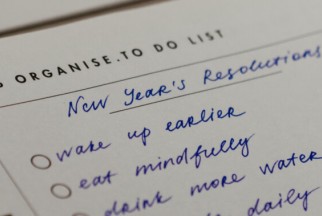 ORGANISE. TO DO LIST
New Year's Resolutions
wake up earlier
eat mindfully
drink more water
daily